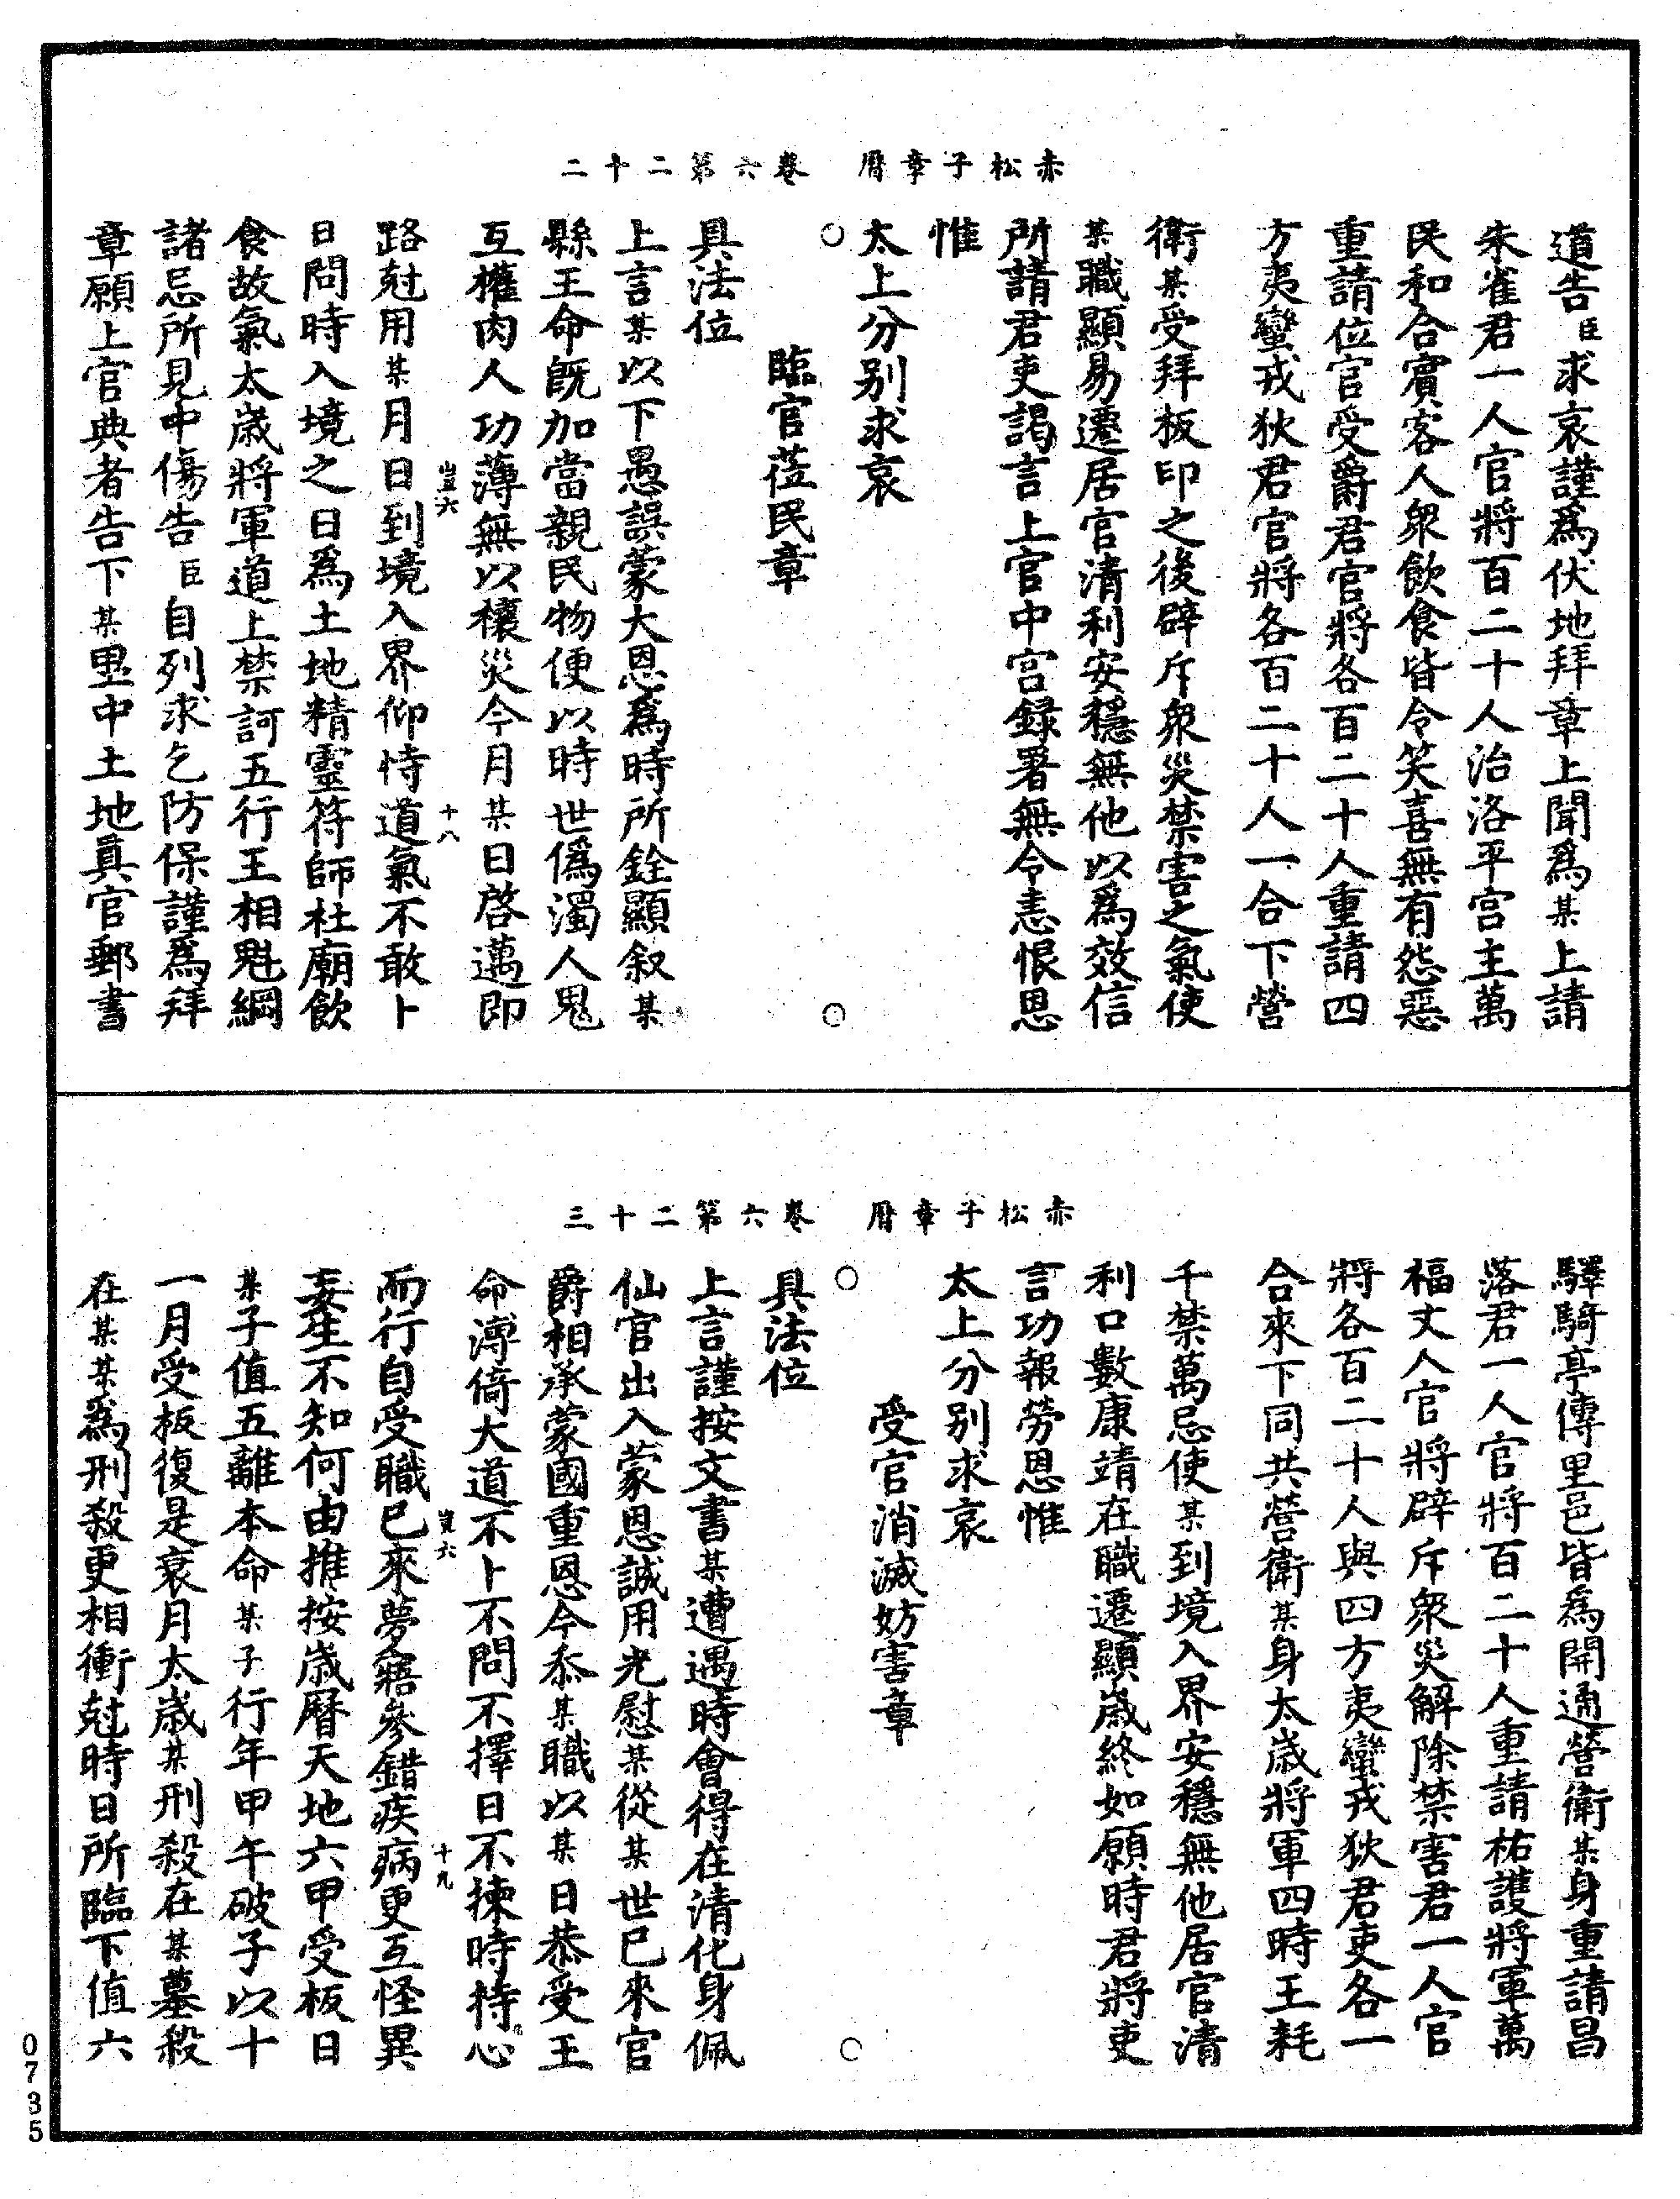 赤松子章曆　卷六第二十二
道告臣求哀謹爲伏地拜章上聞爲某上請
朱雀君一人官將百二十人治洛平宮主萬
民和合賓客人衆飲食皆令笑喜無有怨惡
重請位官受爵君官將各百二十人重請四
方夷蠻戎狄君官將各百二十人一合下營
衛某受拜板印之後辟斥衆災禁害之氣使
某職顯易遷居官清利安穩無他以爲效信
所請君吏謁言上官中宮録署無令恚恨恩
惟
太上分別求哀
○　○
臨官莅民章
具法位
上言某以下愚誤蒙大恩爲時所銓顯叙某
縣王命既加當親民物便以時世僞濁人鬼
互權肉人功薄無以穰災今月某日啓邁即
豈六　十八
路尅用某月日到境入界仰恃道氣不敢卜
日問時入境之日爲土地精靈符師社廟飲
食故氣太歲將軍道上禁訶五行王相魁綱
諸忌所見中傷告臣自列求乞防保謹爲拜
章願上官典者告下某里中土地真官郵書
赤松子章曆　卷六第二十三
驛騎亭傳里邑皆爲開通營衛某身重請昌
落君一人官將百二十人重請祐護將軍萬
福丈人官將辟斥衆災解除禁害君一人官
將各百二十人與四方夷蠻戎狄君吏各一
合來下同共營衛某身太歲將軍四時王耗
千禁萬忌使某到境入界安穩無他居官清
利口數康靖在職遷顯歲終如願時君將吏
言功報勞恩惟
太上分別求哀
受官消滅妨害章
○　○
具法位
上言謹按文書某遭遇時會得在清化身佩
仙官出入蒙恩誠用光慰某從某世已來官
爵相承蒙國重恩今忝某職以某日恭受王
命溥倚大道不卜不問不擇日不揀時持心
豈六　十九
而行自受職已來夢寤參錯疾病更互怪異
妄生不知何由推按歲曆天地六甲受板日
某子值五離本命某子行年甲午破子以十
一月受板復是衰月太歲某刑殺在某墓殺
在某某爲刑殺更相衝尅時日所臨下值六
0735